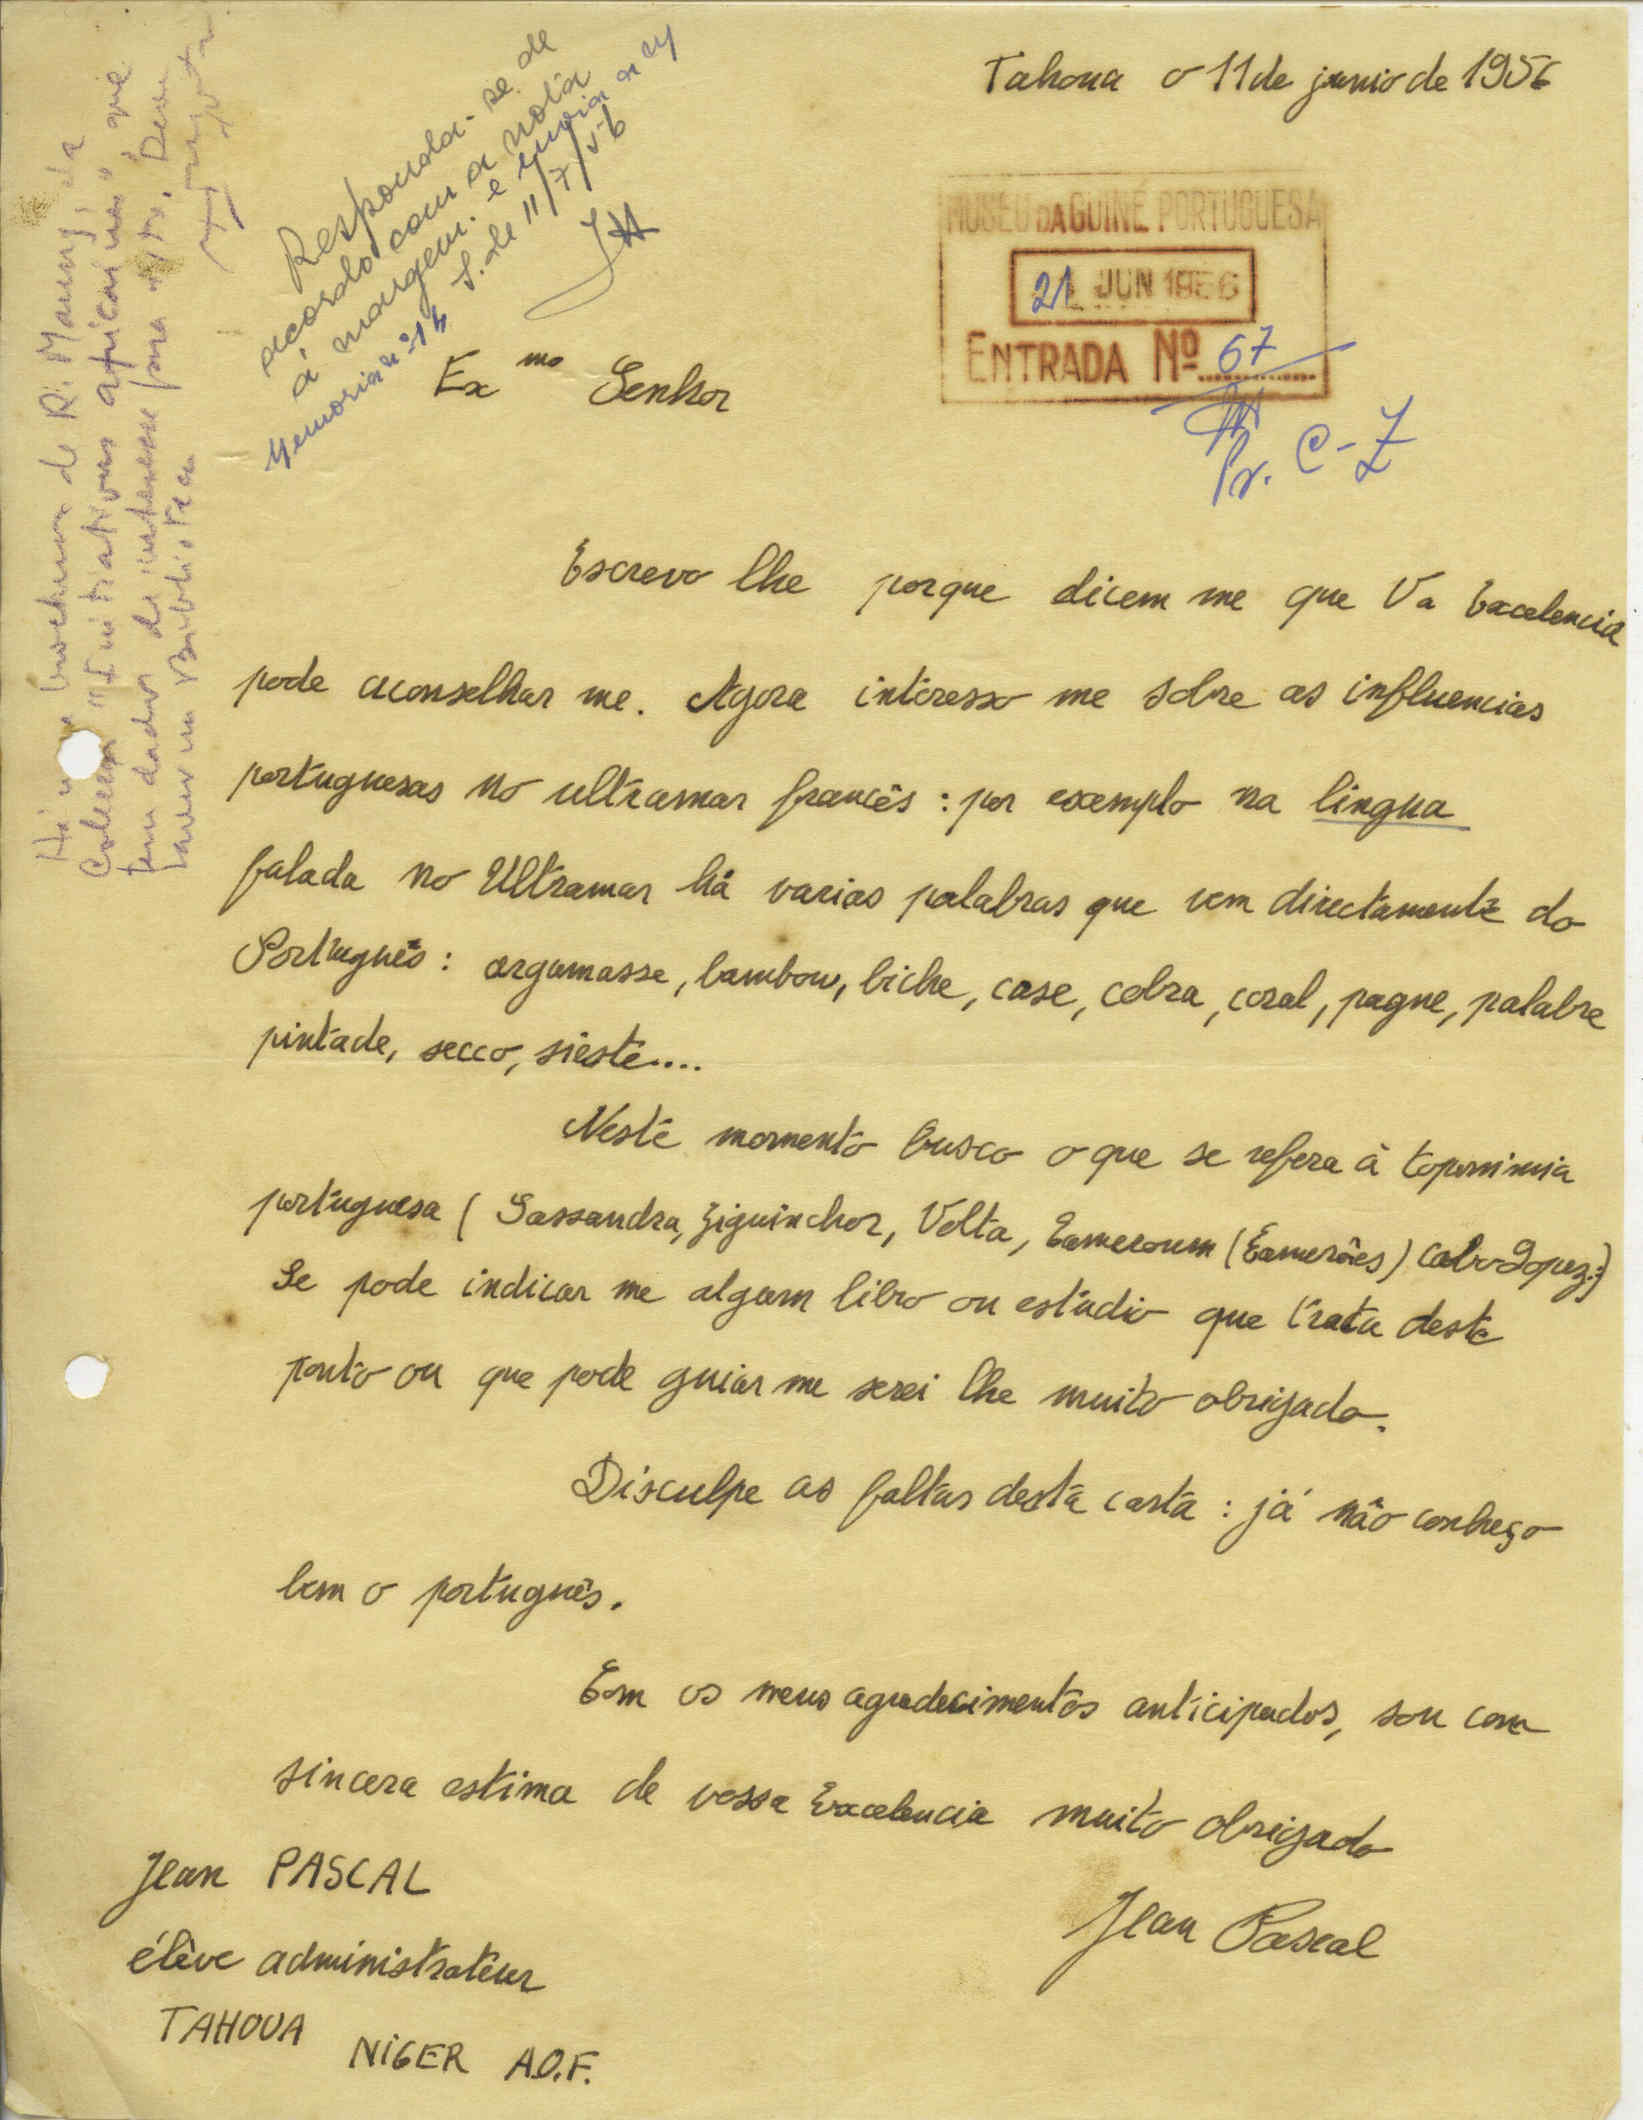 Tahoua o 11 de junio de 1956
Responda-se de
acordo com a nota
à margem. e enviar
Memoria nº 14
S. de 11/7/56
MUSEU DA GUINÉ PORTUGUESA
21 JUN 1956
ENTRADA Nº 67
Pr. C-7
Exmo Senhor
Há brochura de R. Mauny, da
Colecção "Initiations africaines" que
tem dados de interesse para
Biblioteca
Escrevo lhe porque dicem me que Va Excelencia
pode aconselhar me. Agora interesso me sobre as influencias
portuguesas no ultramar francês : por exemplo na lingua
falada no Ultramar há varias palabras que vem directamente do
Português : argamasse, bambou, biche, case, cobra, coral, pagne, palabre
pintade, secco, sieste....
Neste momento busco o que se refera à toponimia
portuguesa ( Sassandra, Ziguinchor, Volta, Cameroum (Camerões) Cabo Lopez.;)
Se pode indicar me algum libro ou estudio que trata deste
ponto ou que pode guiar me serei lhe muito obrigado.
Disculpe as faltas desta carta : já não conheço
bem o português.
Com os meus agradecimentos anticipados, sou com
sincera estima de vossa Excelencia muito obrigado
Jean Pascal
Jean PASCAL
élève administrateur
TAHOUA
NIGER A.O.F.